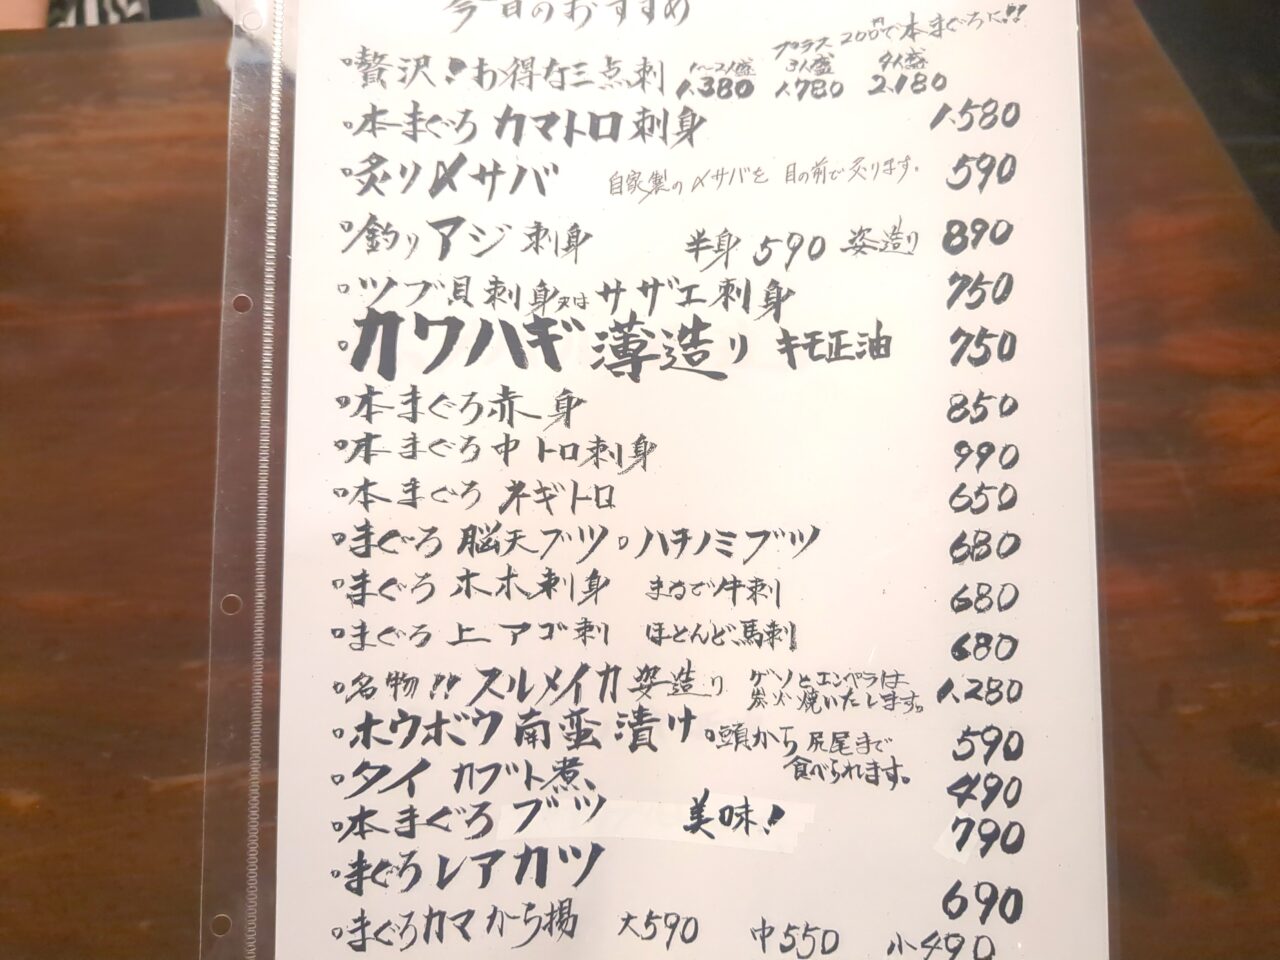 今日のおすすめ
プラス200円で本まぐろに!!
°贅沢!お得な三点刺 1~2人盛 1.380 3人盛 1.780 4人盛 2.180
°本まぐろ カマトロ刺身 1.580
°炙り〆サバ 自家製の〆サバを目の前で炙ります。 590
°釣りアジ刺身 半身590 姿造り 890
°ツブ貝刺身又はサザエ刺身 750
°カワハギ薄造り キモ正油 750
°本まぐろ赤身 850
°本まぐろ中トロ刺身 990
°本まぐろネギトロ 650
°まぐろ脳天ブツ°ハチノミブツ 680
°まぐろホホ刺身 まるで牛刺 680
°まぐろ上アゴ刺 ほとんど馬刺 680
°名物!!スルメイカ姿造り ゲソとエンペラは 1.280
炭火焼いたします。
°ホウボウ南蛮漬け °頭から尻尾まで 590
食べられます。
°タイカブト煮 490
°本まぐろブツ 美味! 790
°まぐろレアカツ 690
°まぐろカマから揚 大590 中550 小490